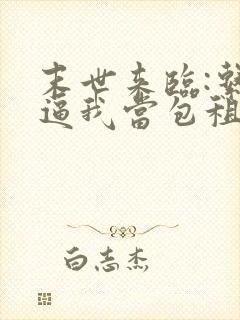 末世来臨:
逼我當包租
白志杰